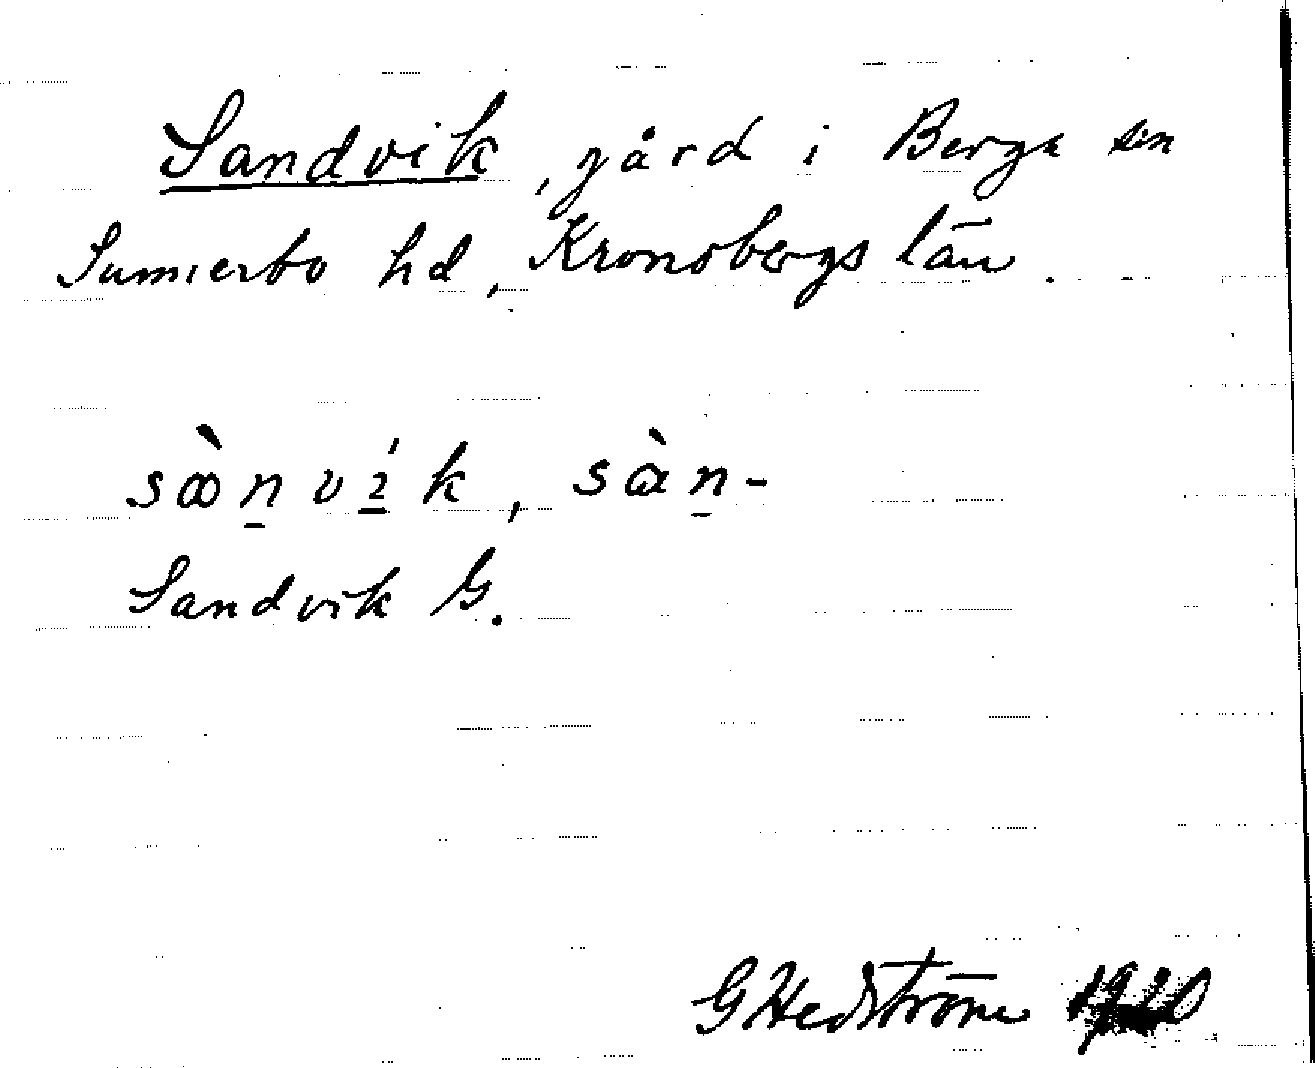 Sandvik, gård i Berga sn
Sunnerbo hd, Kronobergs län.
sꝏ̀n̲ vı̲́k, sɑ̀n̲-
Sandvik G.
G Hedström